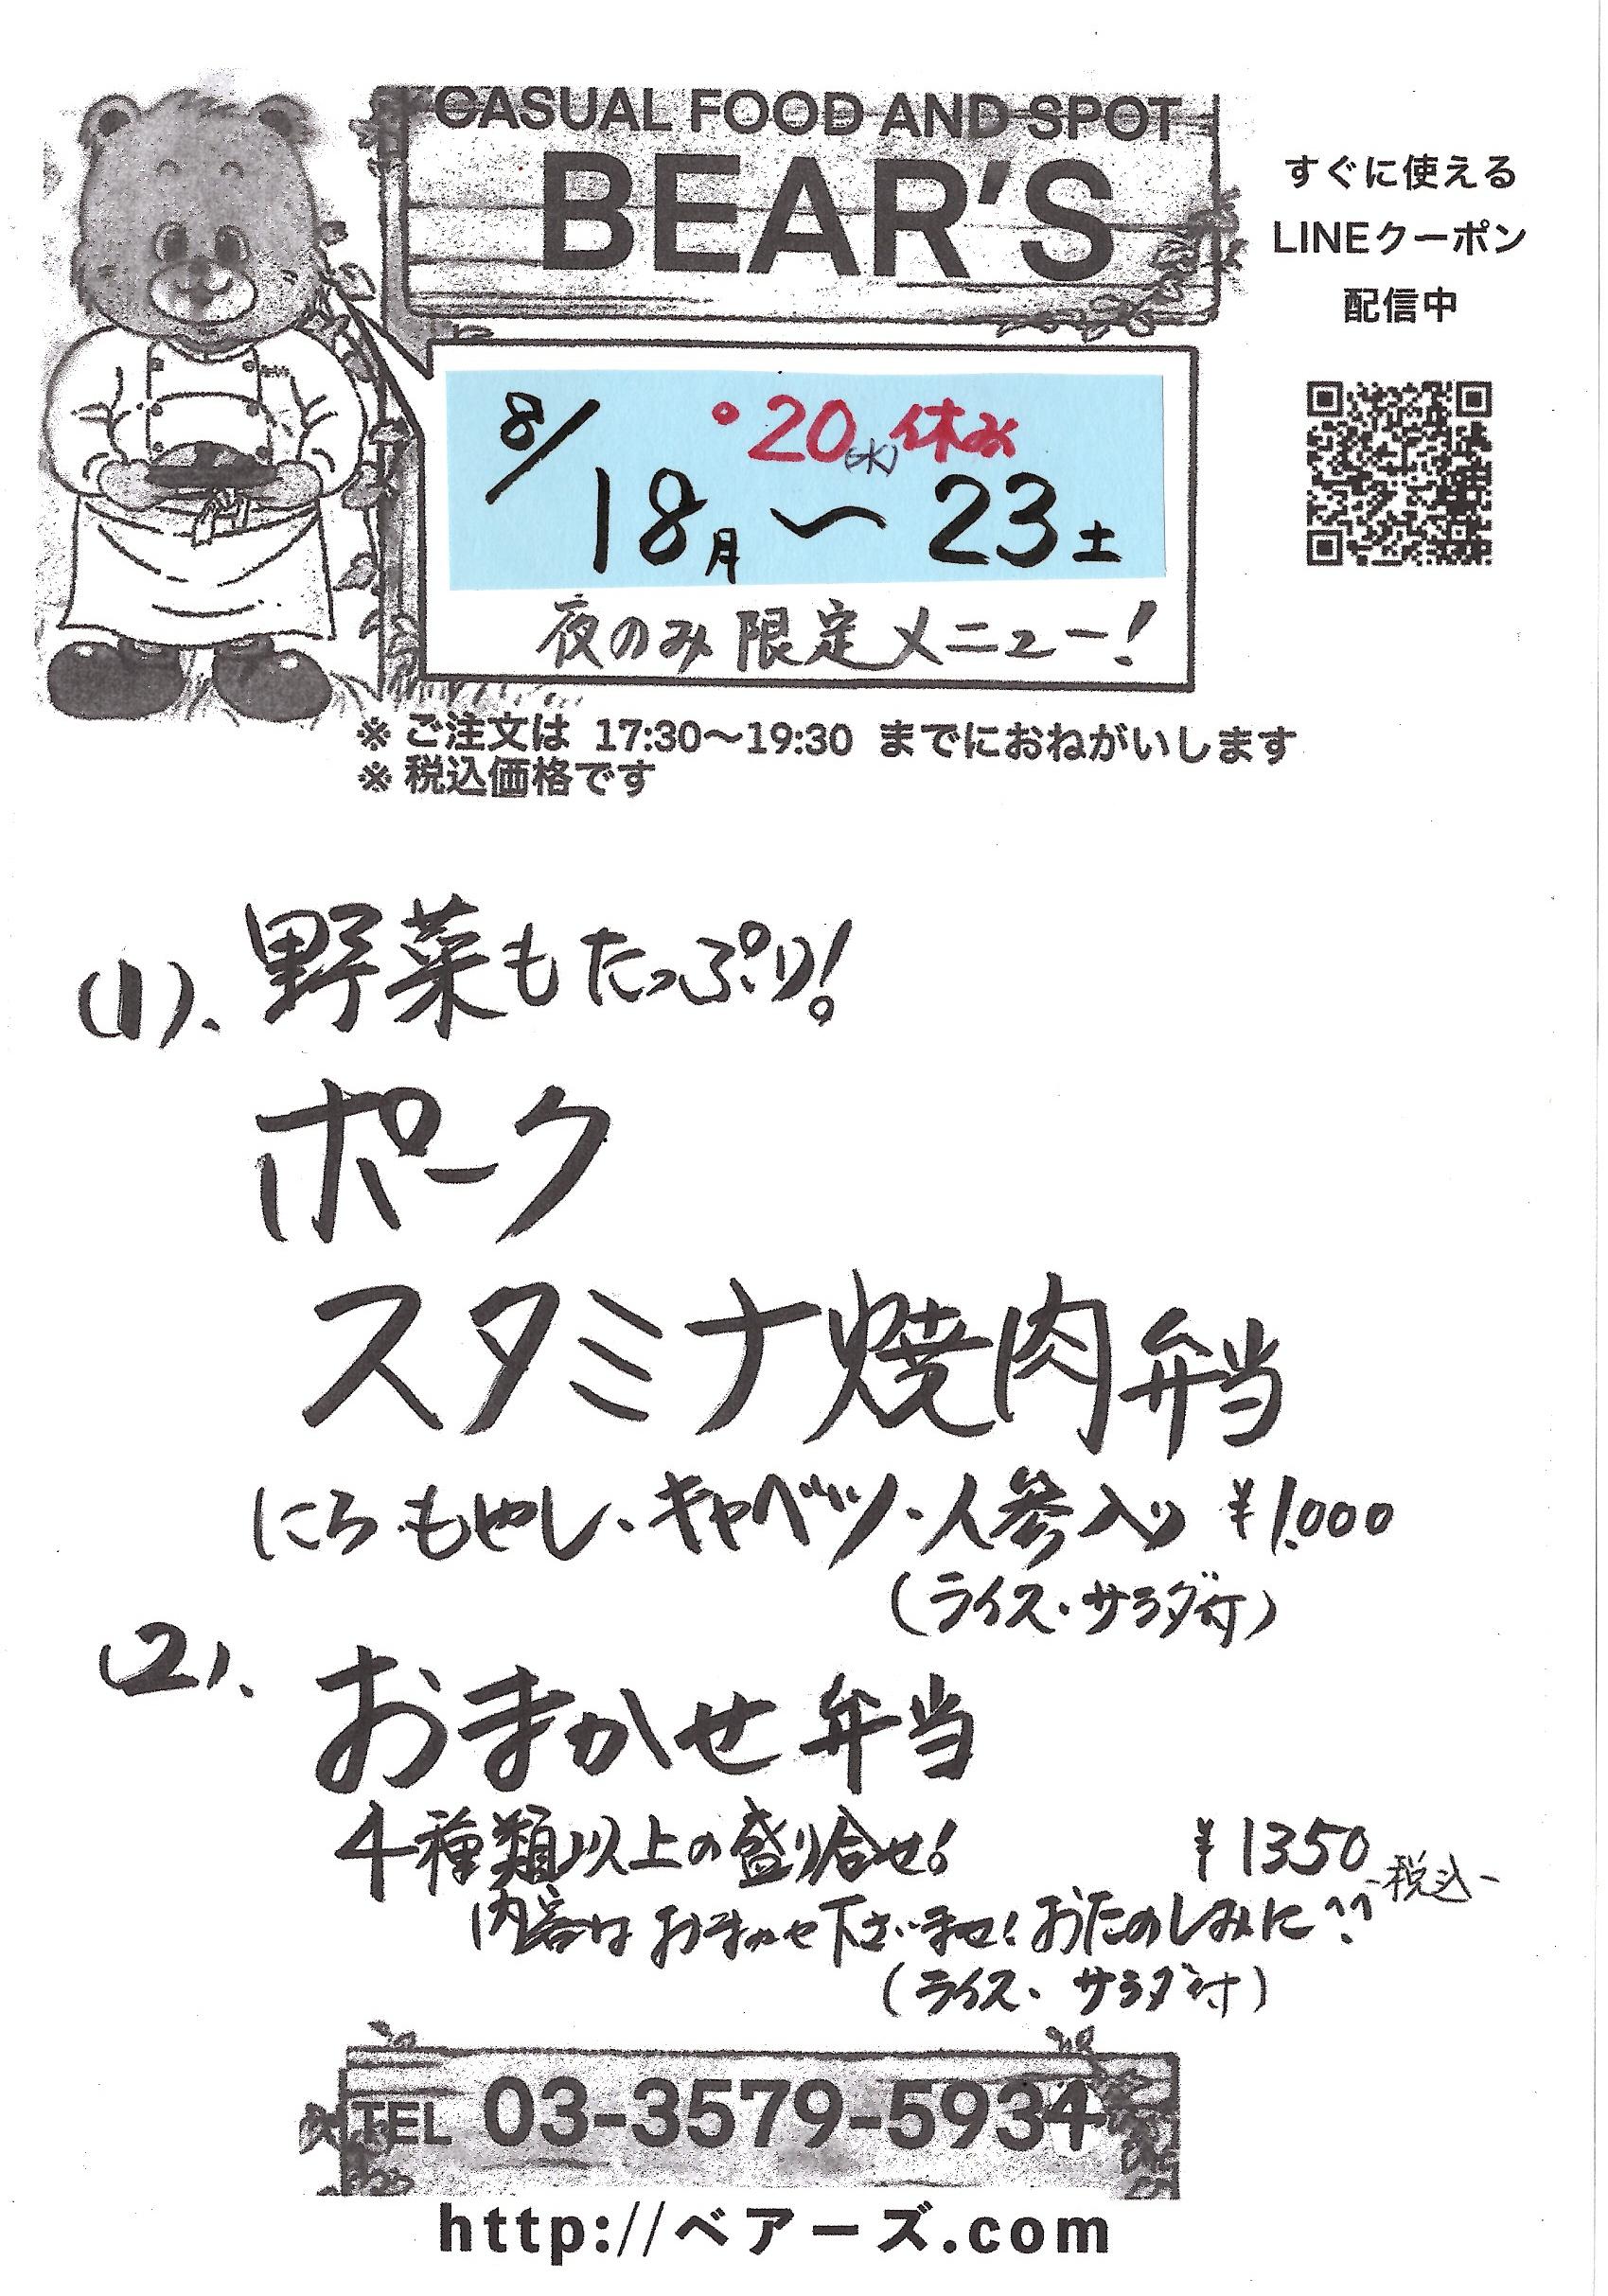 CASUAL FOOD AND SPOT
BEAR'S
すぐに使える
LINEクーポン
配信中
8/
・20(水)休み
18月〜23土
夜のみ限定メニュー!
※ ご注文は 17:30〜19:30 までにおねがいします
※ 税込価格です
(1)、野菜もたっぷり!
ポーク
スタミナ焼肉弁当
にら・もやし・キャベツ・人参入り ¥1.000
(ライス・サラダ付)
(2)、おまかせ弁当
4種類以上の盛り合せ! ¥1350 -税込-
内容はおまかせ下さいませ!おたのしみに^^
(ライス・サラダ付)
TEL 03-3579-5934
http://ベアーズ.com